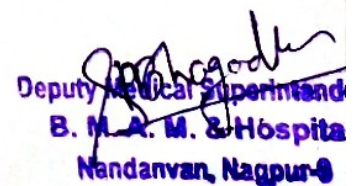 Deputy Medical Superintende
B. M. A. M. & Hospita
Nandanvan, Nagpur-9